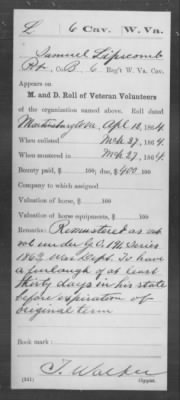 L | 6 Cav. | W. Va.
Samuel Lipscomb
Pvt., Co. B, 6 Reg't W. Va. Cav.
Appears on
M. and D. Roll of Veteran Volunteers
of the organization named above. Roll dated
Martinsburg W Va, Apl 18, 1864.
When enlisted Mch 27, 1864.
When mustered in Mch 27, 1864.
Bounty paid, $ 100; due, $400 100
Company to which assigned
Valuation of horse, $ 100
Valuation of horse equipments, $ 100
Remarks: Remustered as vet
vol under G.O. 191 Series
1863 War Dept. To have
a furlough of at least
thirty days in his state
before expiration of
original term
Book mark:
T. Walker
(341) Copyist.